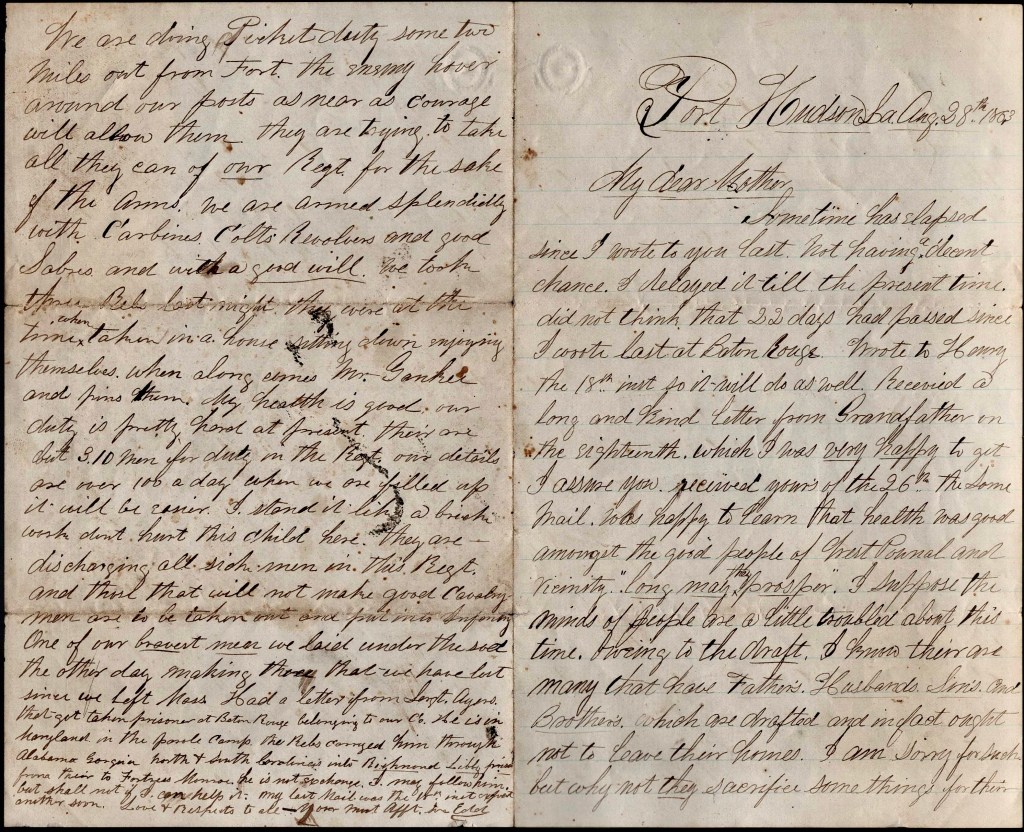 Port Hudson La Aug. 28th 1863
My dear Mother
Sometime has elapsed
since I wrote to you last. Not having a decent
chance. I delayed it till the present time.
did not think that 22 days had passed since
I wrote last at Baton Rouge. Wrote to Henry
the 18th inst so it will do as well. Received a
long and kind letter from Grandfather on
the eighteenth. which I was very happy to get
I assure you. received yours of the 26th the same
Mail. Was happy to learn that health was good
amongst the good people of West Pownal and
vicinity. "long may they prosper". I suppose the
minds of people are a little troubled about this
time. Oweing to the draft. I know their are
many that have Fathers. Husbands. Sons. and
Brothers. which are drafted and in fact ought
not to leave their homes. I am sorry for such
but why not they sacrifice some things for their
We are doing Picket duty some two
miles out from Fort. the enemy hover
around our posts as near as courage
will allow them. they are trying to take
all they can of our Regt. for the sake
of the Arms. we are armed splendidly
with Carbines. Colts Revolvers and good
Sabres and with a good will. We took
three Rebs last night they were at the
time when taken in a house sitting down enjoying
themselves. when along comes Mr. Yankee
and pins them. My health is good. our
duty is pretty hard at present their are
but 310 men for duty in the Regt. our details
are over 100 a day when we are filled up
it will be easier. I stand it like a brick
work dont hurt this child here. they are
discharging all sick men in this Regt.
and those that will not make good Cavalry
men are to be taken out and put into Infantry
One of our bravest men we laid under the sod
the other day making three that we have lost
since we left Mass Had a letter from Sergt. Ayers.
that got taken prisoner at Baton Rouge belonging to our Co. he is in
Maryland in the parole Camp. the Rebs carryed him through
Alabama Georgia North & South Carolinas into Richmond Libby prison
from their to Fortress Monroe. he is not exchange. I may follow him.
but shall not if I can help it. my last Mail was the 18th inst expect
another soon. Love & Respects to all - Your most Afft. Son